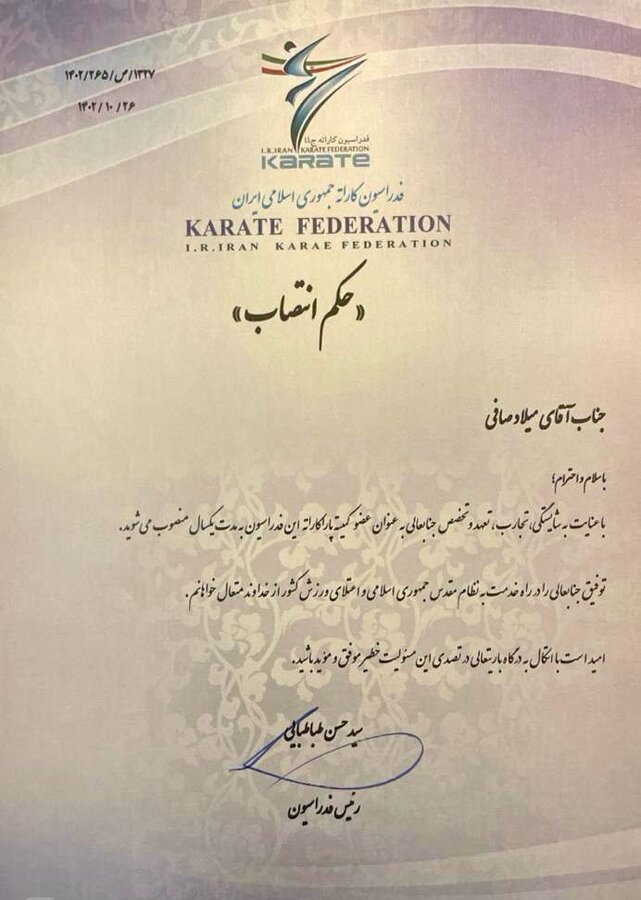 ۱۴۰۲/۲۶۵/ص/۱۳۲۷
۱۴۰۲/۱۰/۲۶
فدراسیون کاراته ج.ا.ا
I.R.IRAN KARATE FEDERATION
KARATE
فدراسیون کاراته جمهوری اسلامی ایران
KARATE FEDERATION
I.R.IRAN KARAE FEDERATION
«حکم انتصاب»
جناب آقای میلاد صافی
با سلام و احترام؛
با عنایت به شایستگی، تجارب، تعهد و تخصص جنابعالی به عنوان عضو کمیته پاراکاراته این فدراسیون به مدت یکسال منصوب می شوید.
توفیق جنابعالی را در راه خدمت به نظام مقدس جمهوری اسلامی و اعتلای ورزش کشور از خداوند متعال خواهانم.
امید است با اتکال به درگاه باریتعالی در تصدی این مسئولیت خطیر موفق و مؤید باشید.
سید حسن طباطبائی
رئیس فدراسیون